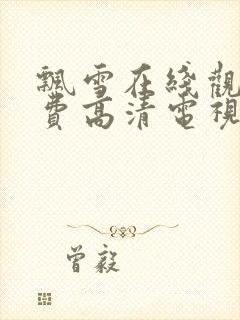 飄雪在綫觀
費高清電視
曾毅